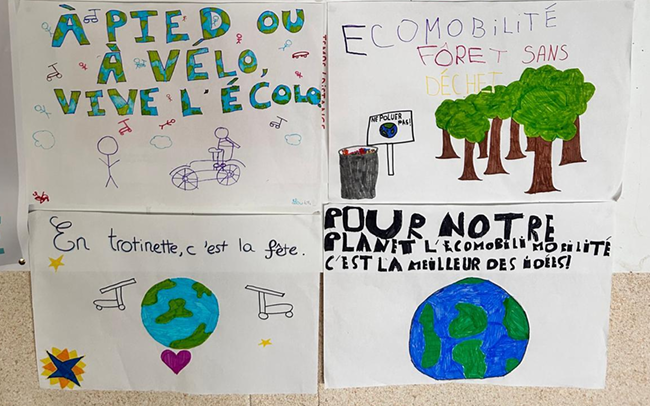 À PIED OU
À VÉLO,
VIVE L'ÉCOLO
ECOMOBILITÉ
FÔRET SANS
DÉCHET
NE POLUER
PAS!
En trotinette, c'est la fête.
POUR NOTRE
PLANET L'ÉCOMOBILI MOBILITÉ
C'EST LA MEILLEUR DES IDÉES!